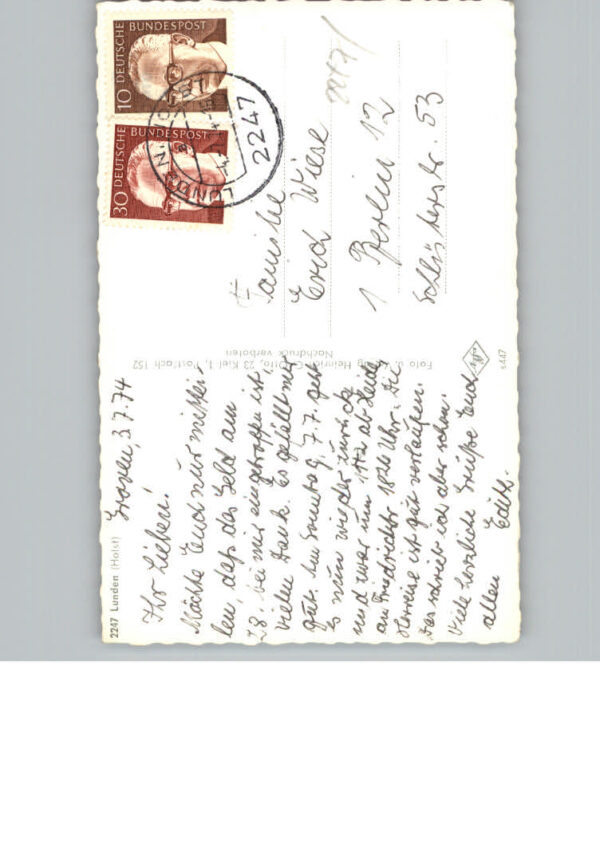 2247 Lunden (Holst)
Groven, 3.7.74
Ihr Lieben!
Möchte Euch nur mittei-
len, daß das Geld am
28. bei mir eingetroffen ist.
Vielen Dank. Es gefällt mir
gut. Am Sonntag, 7.7. geht
es nun wieder zurück
und zwar um ab Heide
an Friedrichstr 1820 Uhr. Die
Herreise ist gut verlaufen.
Das schrieb ich aber schon.
Viele herzliche Grüße Euch
allen Edith.
Foto u. Verlag Heinrich C. Otto, 23 Kiel 1, Postfach 152
Nachdruck verboten
s447
DEUTSCHE BUNDESPOST
10
DEUTSCHE BUNDESPOST
30
2247
LUNDEN
Familie
Erich Wiese
1 Berlin 12
Schlüterstr. 53